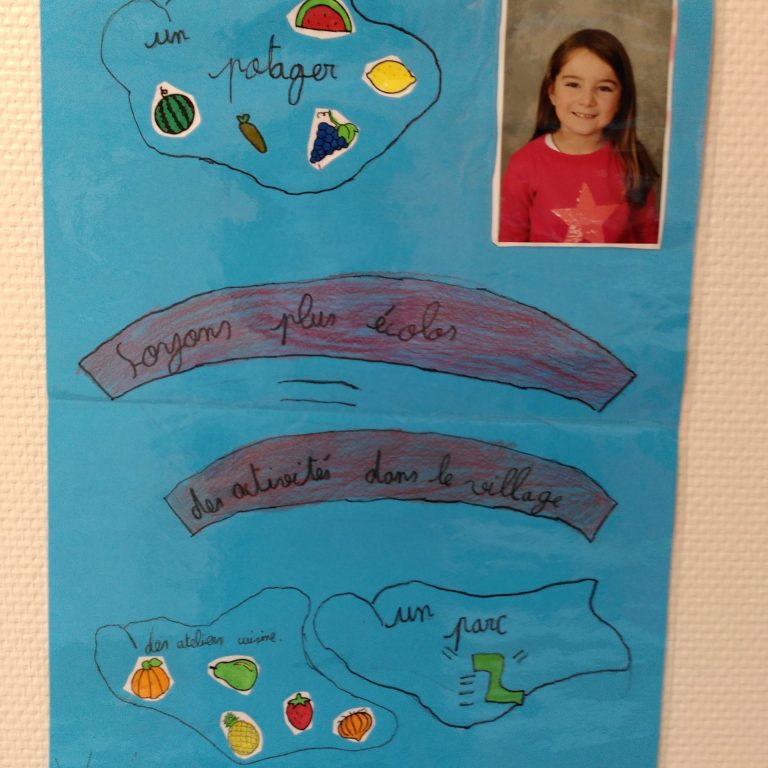 un
potager
Soyons plus écolos
des activités dans le village
un
des ateliers cuisine.
parc